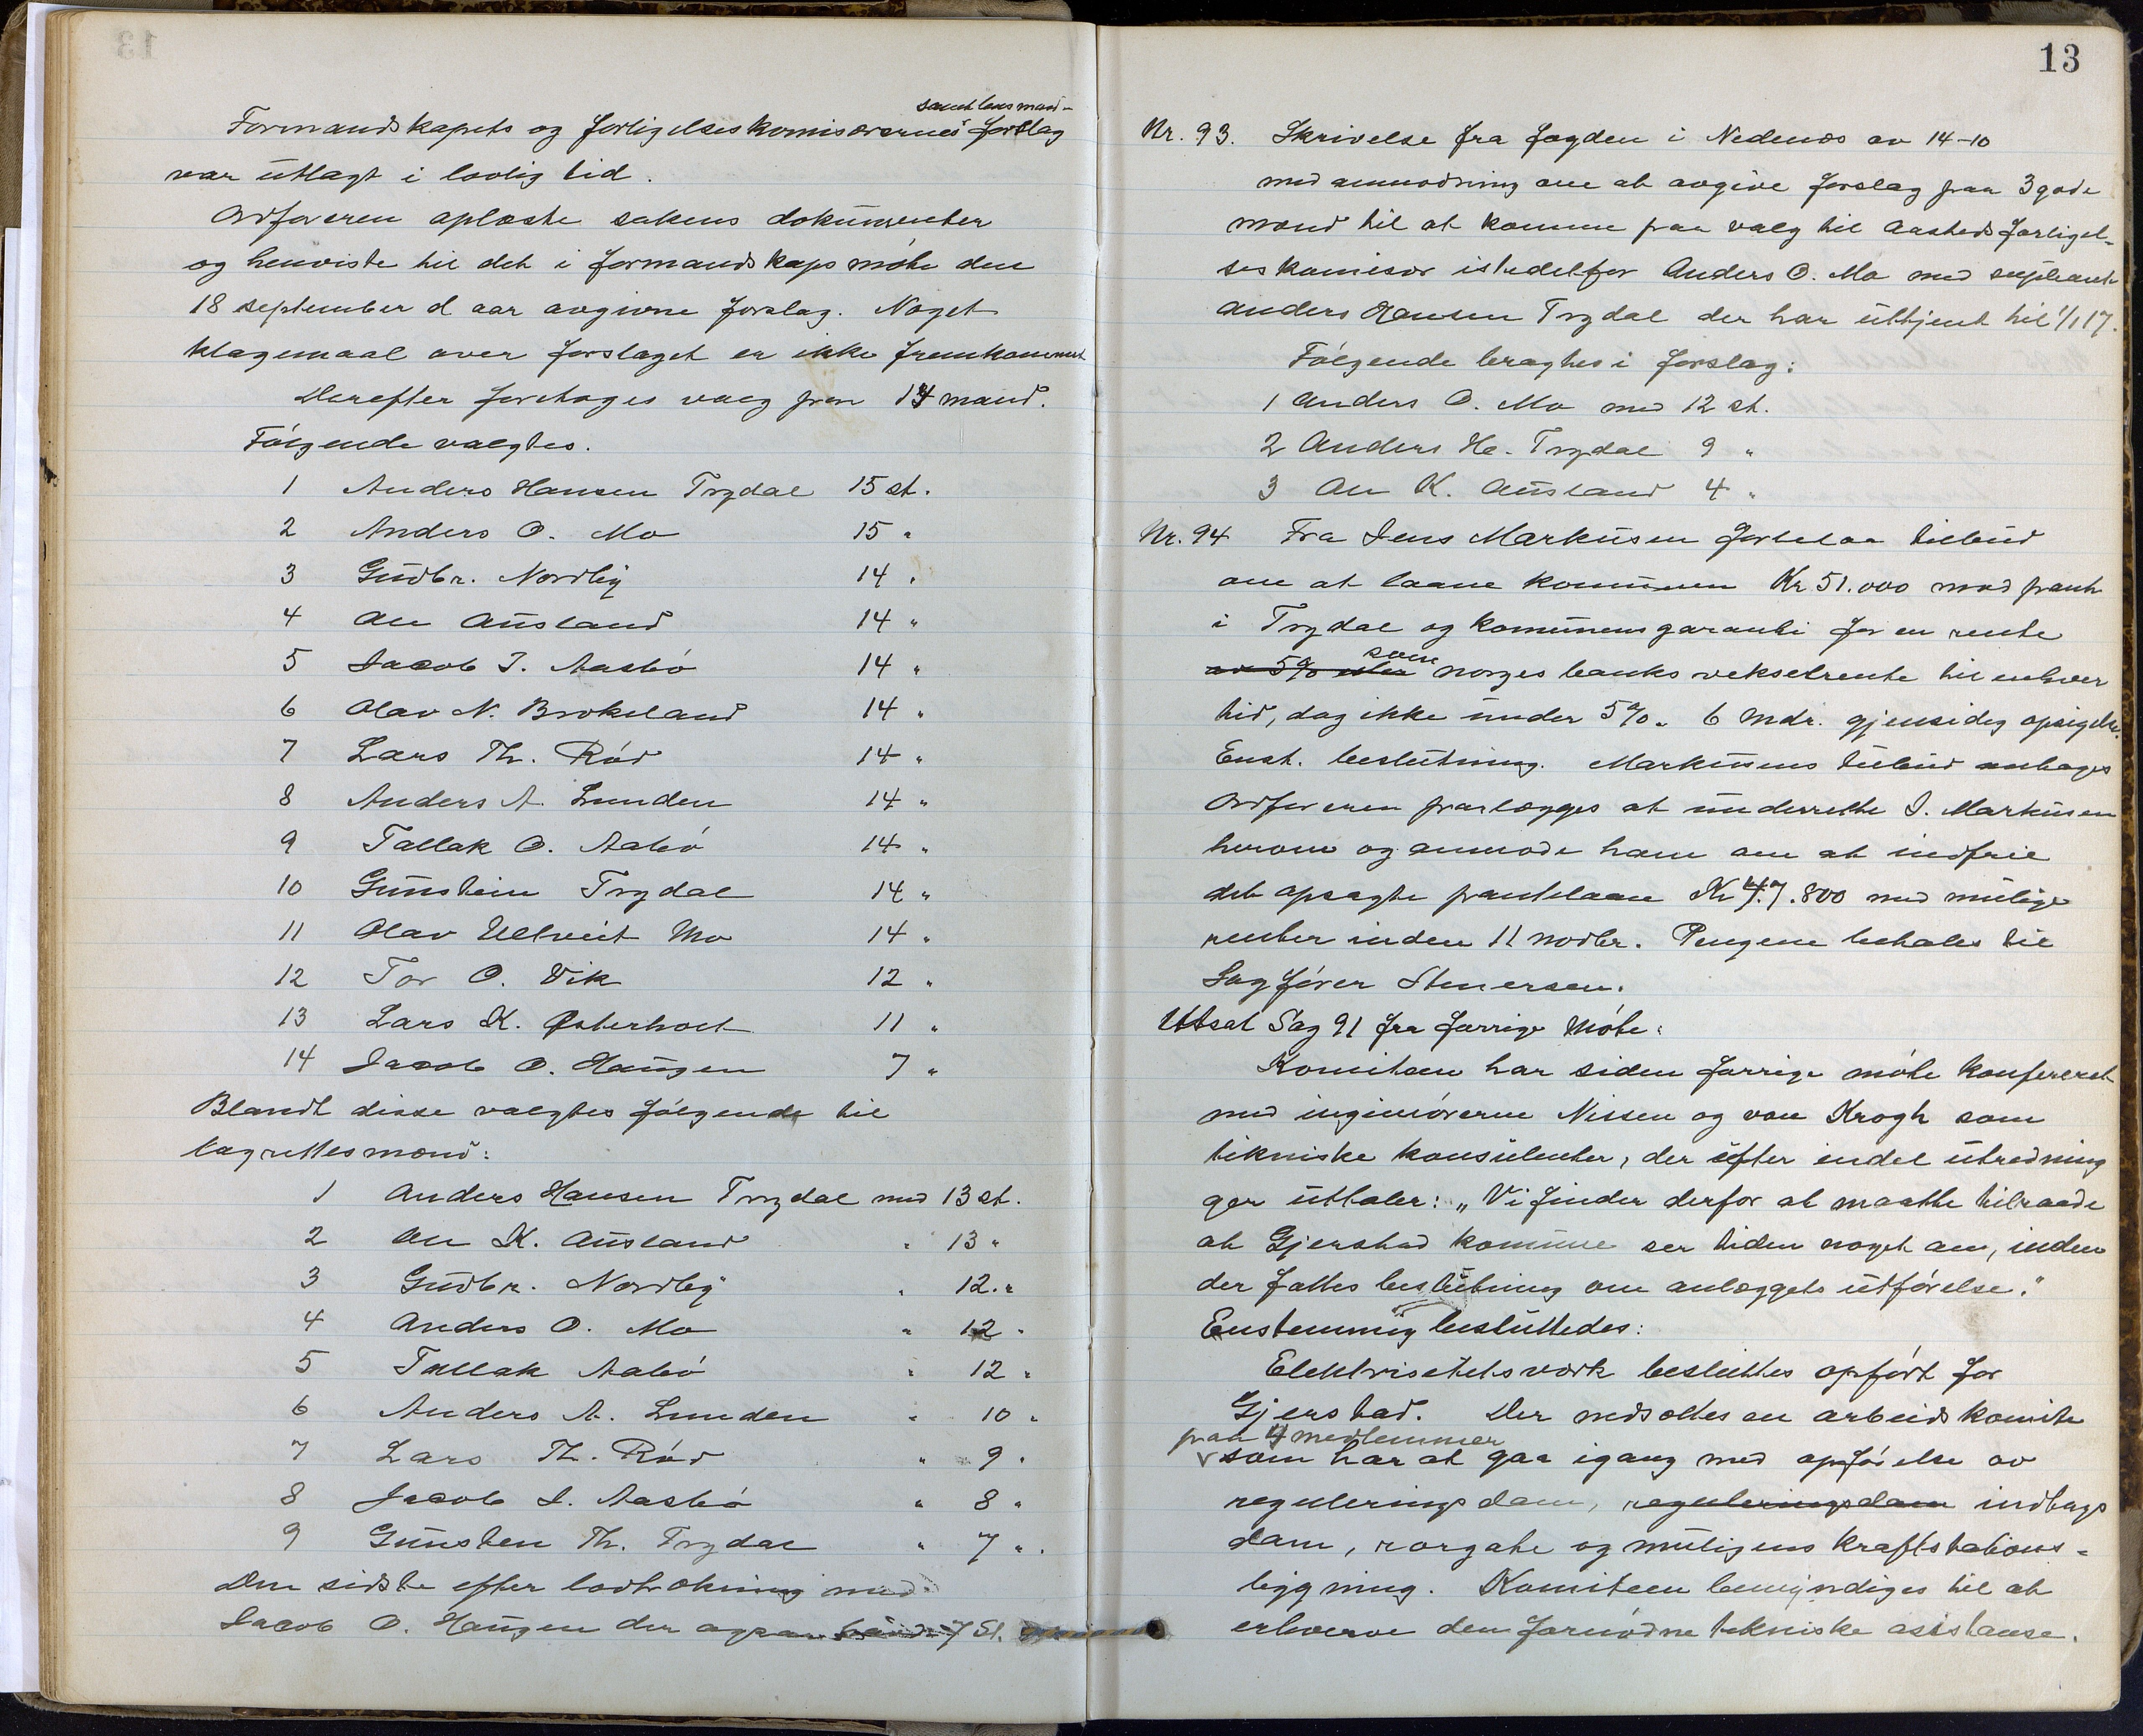 Formandskapets og forligelseskomisærernes samt lensmand- forslag
var utlagt i lovlig tid.
Ordføreren oplæste sakens dokumenter
og henviste til det i formandskapsmøte den
18 september d aar avgivne forslag. Noget
klagemaal over forslaget er ikke fremkommet
Derefter foretoges valg paa 14 mand.
Følgende valgtes.
1 Anders Hansen Trydal 15 st.
2 Anders O. Mo 15 "
3 Gudbr. Nordby 14 "
4 An Ausland 14 "
5 Jacob J. Aasbø 14 "
6 Olav N. Brokeland 14 "
7 Lars Th. Rød 14 "
8 Anders A. Lunden 14 "
9 Tallak O. Aabø 14 "
10 Gunstein Trydal 14 "
11 Olav Ulltveit Mo 14 "
12 Tor O. Vik 12 "
13 Lars K. Østerholt 11 "
14 Jacob O. Haugen 7 "
Blandt disse valgtes følgende til
lagrettesmænd:
1 Anders Hansen Trydal med 13 st.
2 An K. Ausland " 13 "
3 Gudbr. Nordby " 12 "
4 Anders O. Mo " 12 "
5 Tallak Aabø " 12 "
6 Anders A. Lunden " 10 "
7 Lars Th. Rød " 9 "
8 Jacob J. Aasbø " 8 "
9 Gunsten Th. Trydal " 7 ".
Den sidste efter lodtrækning med
Jacob O. Haugen der ogsaa havde 7 St.
13
Nr. 93. Skrivelse fra fogden i Nedenæs av 14-10
med anmodning om at avgive forslag paa 3 gode
mænd til at komme paa valg til Aastedsforligel-
seskomisær istedetfor Anders O. Mo med supleant
Anders Hansen Trydal der har uttjent til 1/1 17.
Følgende bragtes i forslag:
1 Anders O. Mo med 12 st.
2 Anders Ha. Trydal 9 "
3 An K. Ausland 4 "
Nr. 94 Fra Jens Markusen forelaa tilbud
om at laane kommunen Kr 51.000 mod pant
i Trydal og komunens garanti for en rente
av 5% eller som norges banks vekselrente til enhver
tid, dog ikke under 5%. 6 Mdr. gjensidig opsigelse.
Enst. beslutning. Markusens tilbud antages
Ordføreren paalægges at underrette J. Markusen
herom og anmode ham om at indfrie
det opsagte pantelaan Kr 47.800 med mulige
renter inden 11 novbr. Pengene betales til
Sagfører Stenersen.
Utsat Sag 91 fra forrige Møte:
Komiteen har siden forrige møte konfereret
med ingeniørerne Nissen og von Krogh som
tekniske konsulenter, der efter endel utredning
ger uttaler: „Vi finder derfor at maatte tilraade
at Gjerstad kommune ser tiden noget an, inden
der fattes beslutning om anlæggets utførelse."
Enstemmig besluttedes:
Elektrisitetsverk besluttes opført for
Gjerstad. Der nedsættes en arbeidskomite
paa 4 medlemmer
som har at gaa igang med opførelse av
reguleringsdam, reguleringsdam indtags
dam, rørgate og muligens kraftstations-
bygning. Komiteen bemyndiges til at
erhverve den fornødne tekniske asistanse.